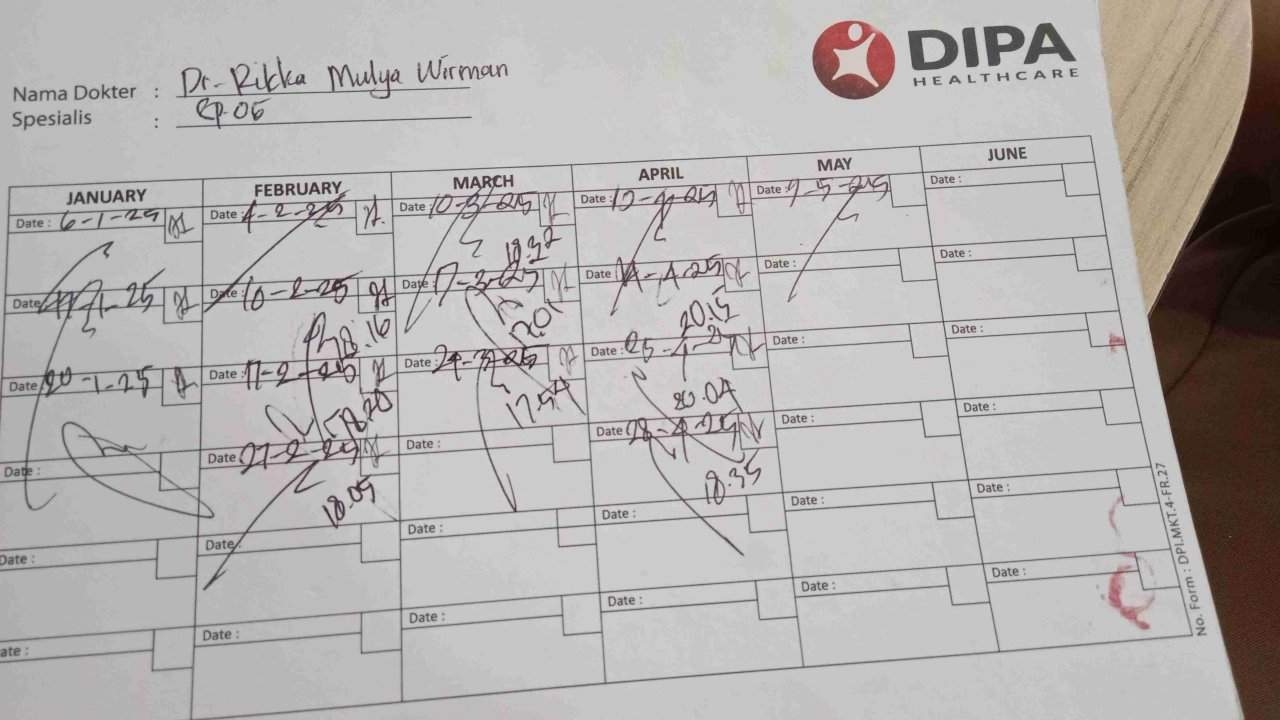 DIPA
HEALTHCARE
Nama Dokter : Dr. Rikka Mulya Wirman
Spesialis : GP. 05
JANUARY FEBRUARY MARCH APRIL MAY JUNE
Date : 6-1-25 Date : 4-2-25 Date : 10-3-25 Date : 10-4-25 Date : 9-5-25 Date :
18.32
Date -1-25 Date : 10-2-25 Date : 17-3-25 Date : 14-4-25 Date : Date :
18.16 20.15
Date : 20-1-25 Date : 17-2-25 Date : 24-3-25 Date : 25-4-25 Date : Date :
17.54 20.04
Date : Date 27-2-25 Date : Date 28-4-25 Date : Date :
18.05 18.35
Date : Date : Date : Date : Date : Date :
ate : Date : Date : Date : Date : Date :
No. Form : DPI.MKT.4-FR.27